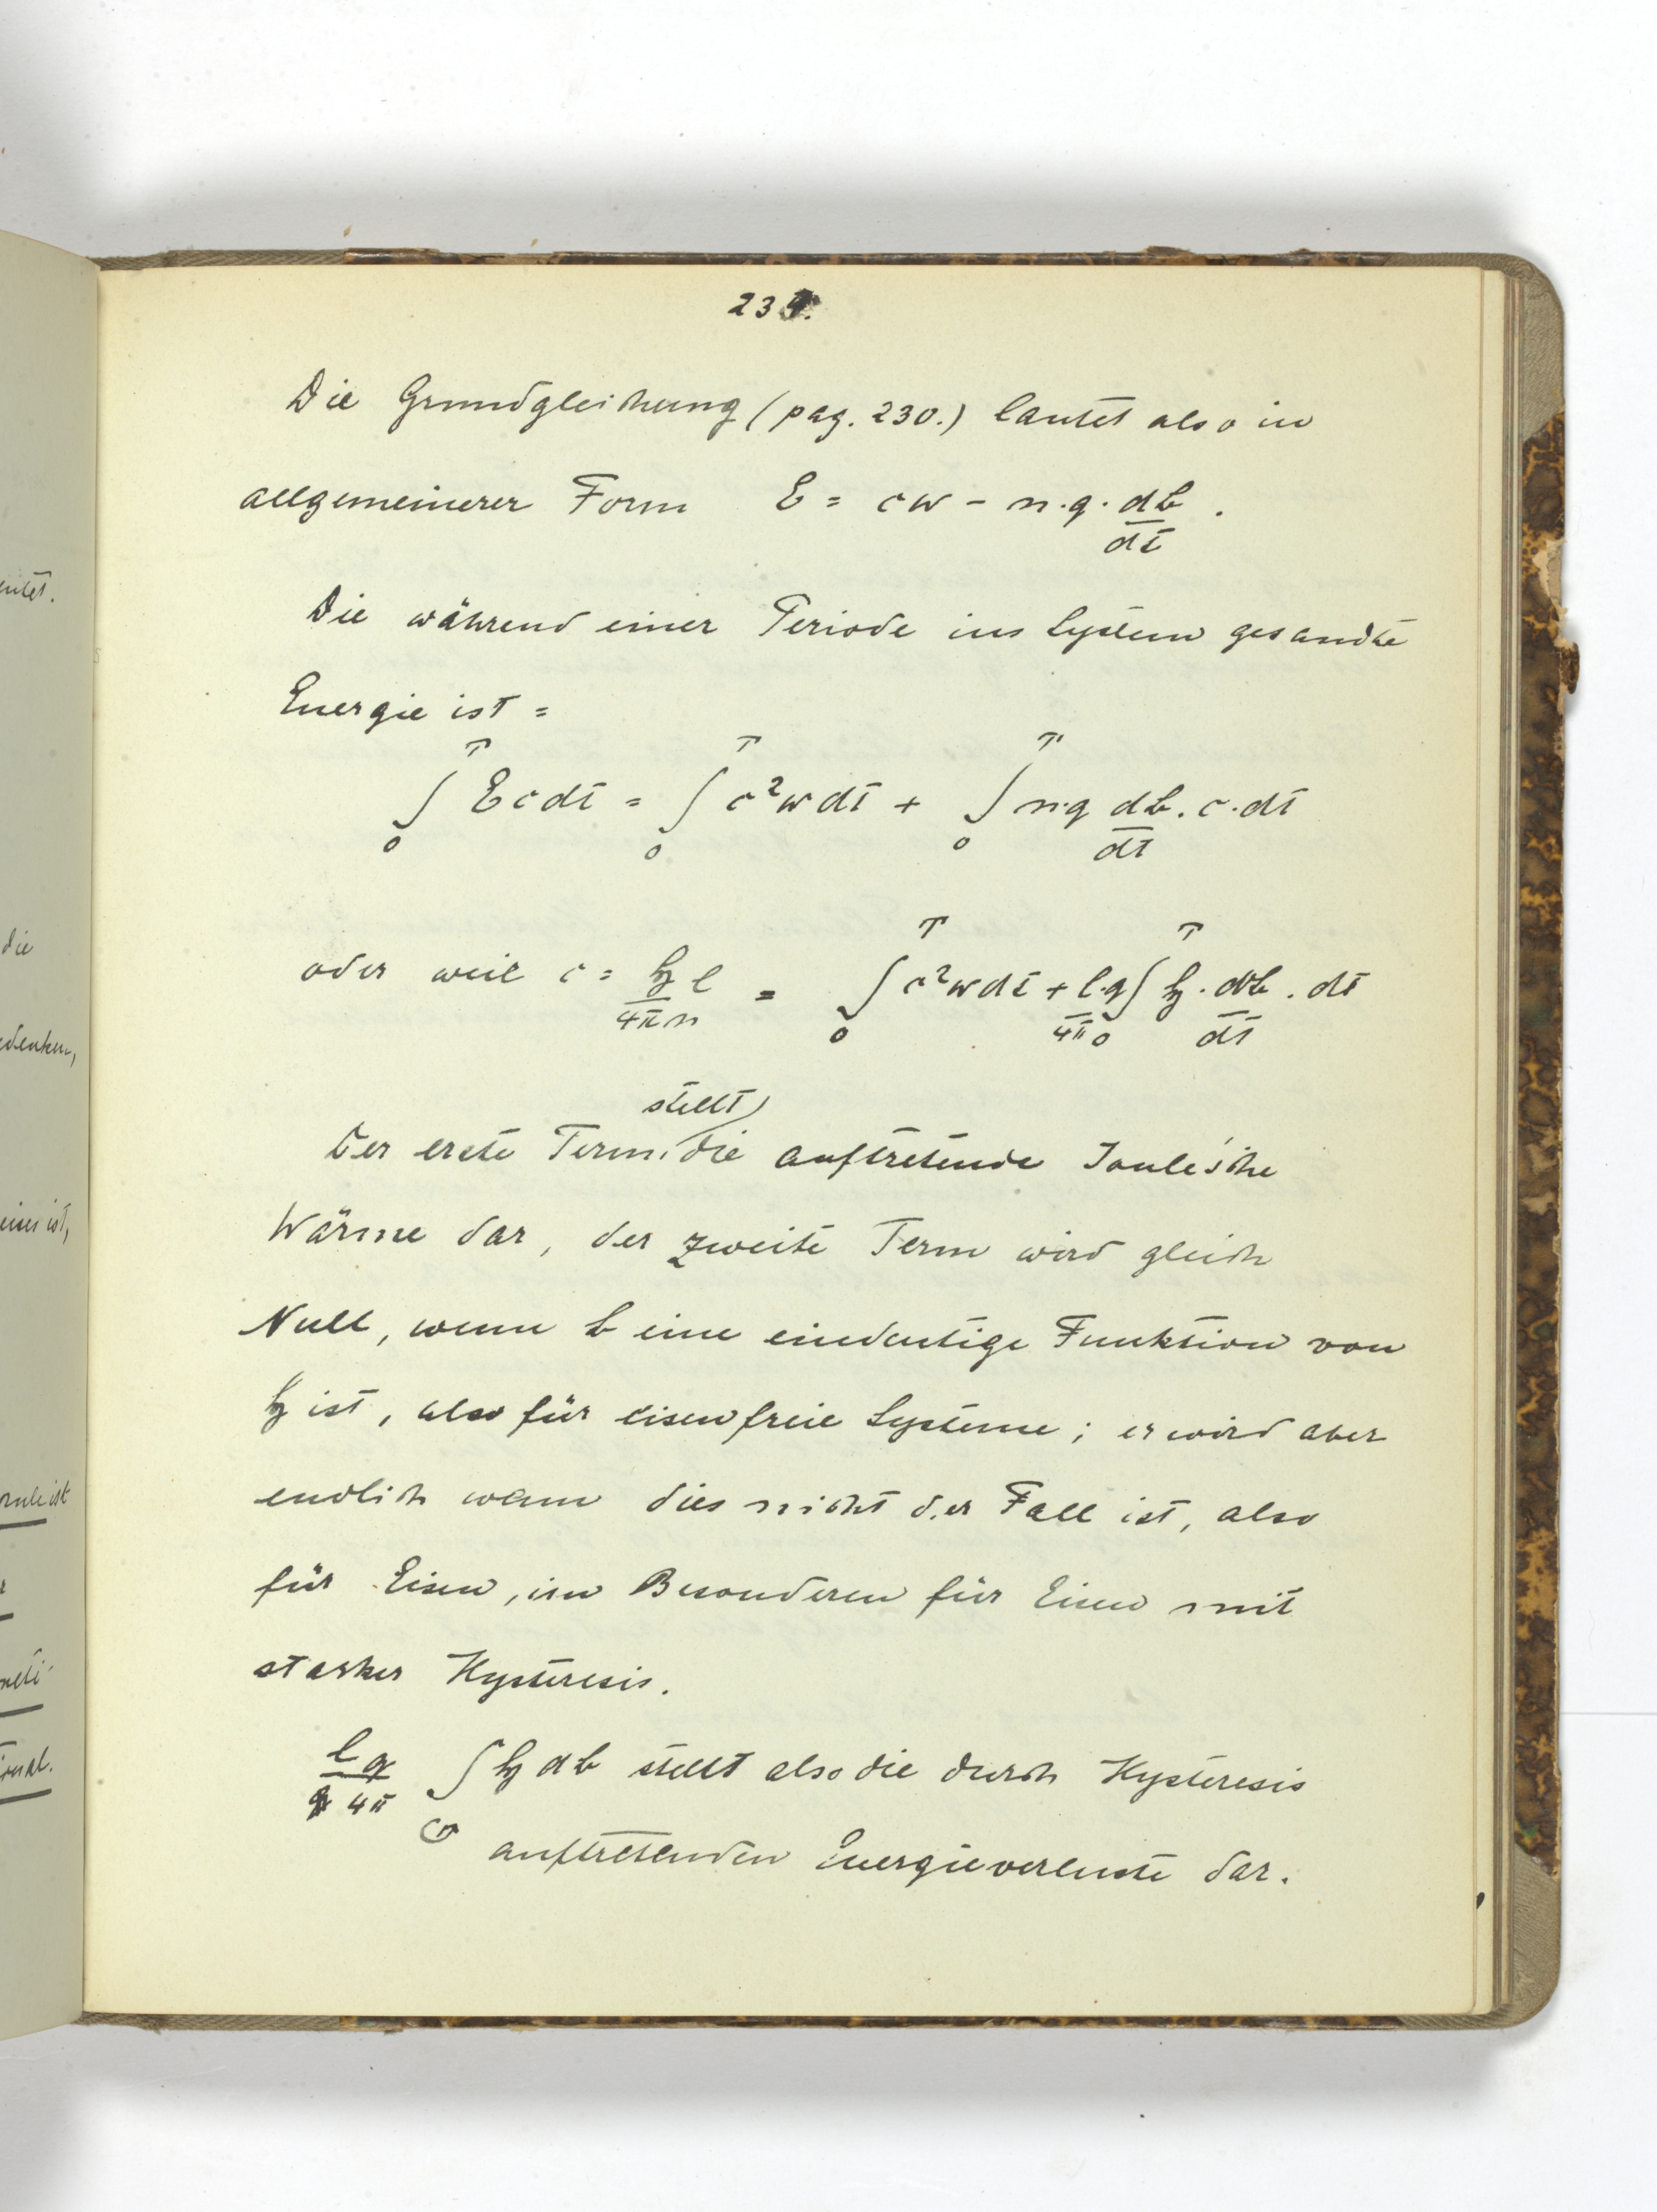 entet.
die
edenken,
eises ist,
meti-
234.
Die Grundgleichung (pag. 230.) lautet also in
allgemeinerer Form E = cw - n.q. d𝔟/dt .
Die während einer Periode ins System gesandte
Energie ist =
∫₀ᵀ E c dt = ∫₀ᵀ c² w dt + ∫₀ᵀ n.q d𝔟/dt . c. dt
oder weil c = 𝔥 l / 4πn = ∫₀ᵀ c² w dt + l.q/4π ∫₀ᵀ 𝔥 . d𝔟/dt . dt
stellt
Der erste Term die auftretende Joule'sche
Wärme dar, der zweite Term wird gleich
Null, wenn 𝔟 eine eindeutige Funktion von
𝔥 ist, also für eisenfreie Systeme; er wird aber
endlich wenn dies nicht der Fall ist, also
für Eisen, im Besonderen für Eisen mit
starker Hysteresis.
l q / 4π ∫ 𝔥 d𝔟 stellt also die durch Hysteresis
auftretenden Energieverluste dar.